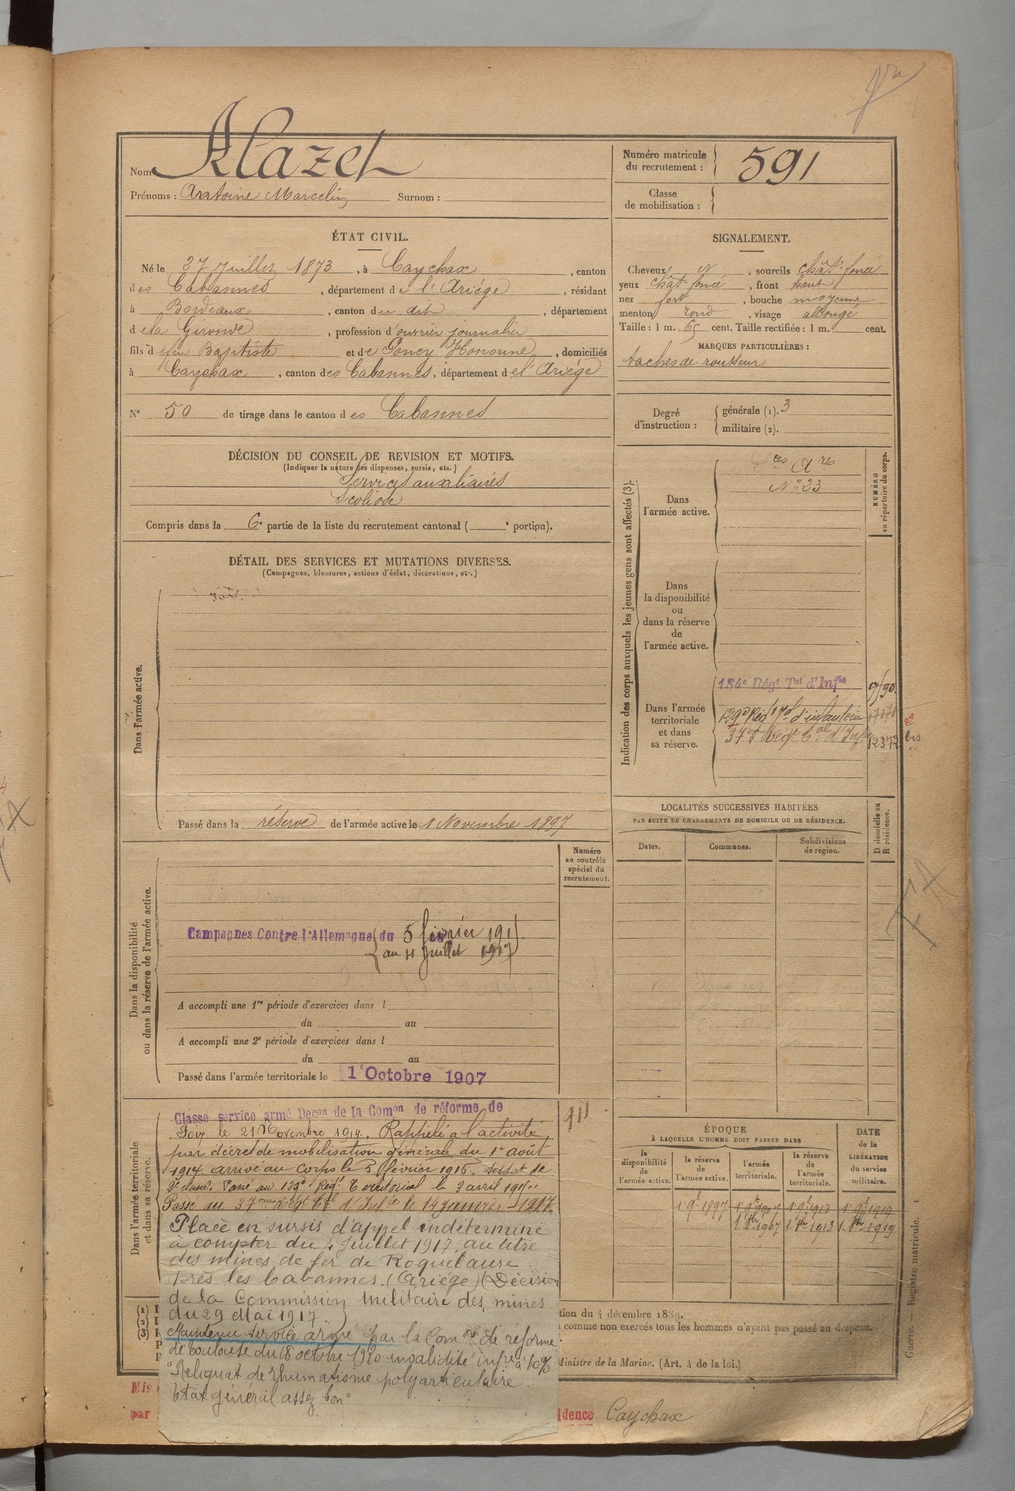 Nom Alazet
Prénoms : Antoine Marcelin Surnom :
Numéro matricule
du recrutement : 591
Classe
de mobilisation :
ÉTAT CIVIL.
Né le 27 Juillet 1873, à Caychax, canton
des Cabannes, département de l'Ariège, résidant
à Bordeaux, canton du dit, département
de la Gironde, profession d'ouvrier journalier
fils d feu Baptiste et de Honorine, domiciliés
à Caychax, canton des Cabannes, département de l'Ariège
N° 50 de tirage dans le canton des Cabannes
SIGNALEMENT.
Cheveux N, sourcils chât. foncé
yeux chât. foncé, front haut
nez fort, bouche moyenne
menton rond, visage allongé
Taille : 1 m. 65 cent. Taille rectifiée : 1 m. cent.
MARQUES PARTICULIÈRES :
taches de rousseur
Degré
d'instruction :
générale (1). 3
militaire (2).
DÉCISION DU CONSEIL DE REVISION ET MOTIFS.
(Indiquer la nature des dispenses, sursis, etc.)
Services auxiliaires
Scoliose
Compris dans la 6e partie de la liste du recrutement cantonal ( e portion).
DÉTAIL DES SERVICES ET MUTATIONS DIVERSES.
(Campagnes, blessures, actions d'éclat, décorations, etc.)
Dans l'armée active.
Passé dans la réserve de l'armée active le 1 Novembre 1897
Indication des corps auxquels les jeunes gens sont affectés (3).
NUMÉRO
au répertoire du corps.
Dans
l'armée active.
N° 23
Dans
la disponibilité
ou
dans la réserve
de
l'armée active.
Dans l'armée
territoriale
et dans
sa réserve.
134e Régt Tal d'Infie
129e Régt Tal d'infanterie
37e Régt Cal d'Infie
bis
LOCALITÉS SUCCESSIVES HABITÉES
PAR SUITE DE CHANGEMENTS DE DOMICILE OU DE RÉSIDENCE.
Dates.
Communes.
Subdivisions
de région.
D domicile ou
R résidence.
Dans la disponibilité
ou dans la réserve de l'armée active.
Numéro
au contrôle
spécial du
recrutement.
Campagnes Contre l'Allemagne du 5 février 191
au 4 juillet 1917
A accompli une 1re période d'exercices dans l
du au
A accompli une 2e période d'exercices dans l
du au
Passé dans l'armée territoriale le 1er Octobre 1907
Dans l'armée territoriale
et dans sa réserve.
Classe service armé Décon de la Comon de réforme de
Foix le 21 Novembre 1914. Rappelé à l'activité
par décret de mobilisation générale du 1er août
1914 arrivé au corps le 5 février 1915, soldat de
2e classe. Passé au 129e Régt Territorial le 3 avril
Passé au 37eme Régt Cal d'Infie le 14 janvier 1917
Placé en sursis d'appel indéterminé
à compter du 4 juillet 1917 au titre
des mines de fer de Roquelaure
près les Cabannes (Ariège) (Décision
de la Commission militaire des mines
du 29 Mai 1917.
Maintenu service armé par la Comon de réforme
de Toulouse du 18 octobre 1920 invalidité infre à 10%
"Reliquat de rhumatisme polyarticulaire
état général assez bon"
ÉPOQUE
À LAQUELLE L'HOMME DOIT PASSER DANS
la
disponibilité
de
l'armée active.
la
réserve
de
l'armée active.
l'armée
territoriale.
la
réserve
de l'armée
territoriale.
DATE
de la
LIBÉRATION
du service
militaire.
1 9bre 1897
tion du 4 décembre 1889.
comme non exercés tous les hommes n'ayant pas passé au drapeau.
Ministre de la Marine. (Art. 4 de la loi.)
Guerre. — Registre matricule. 1
Mis
par
idence Caychax